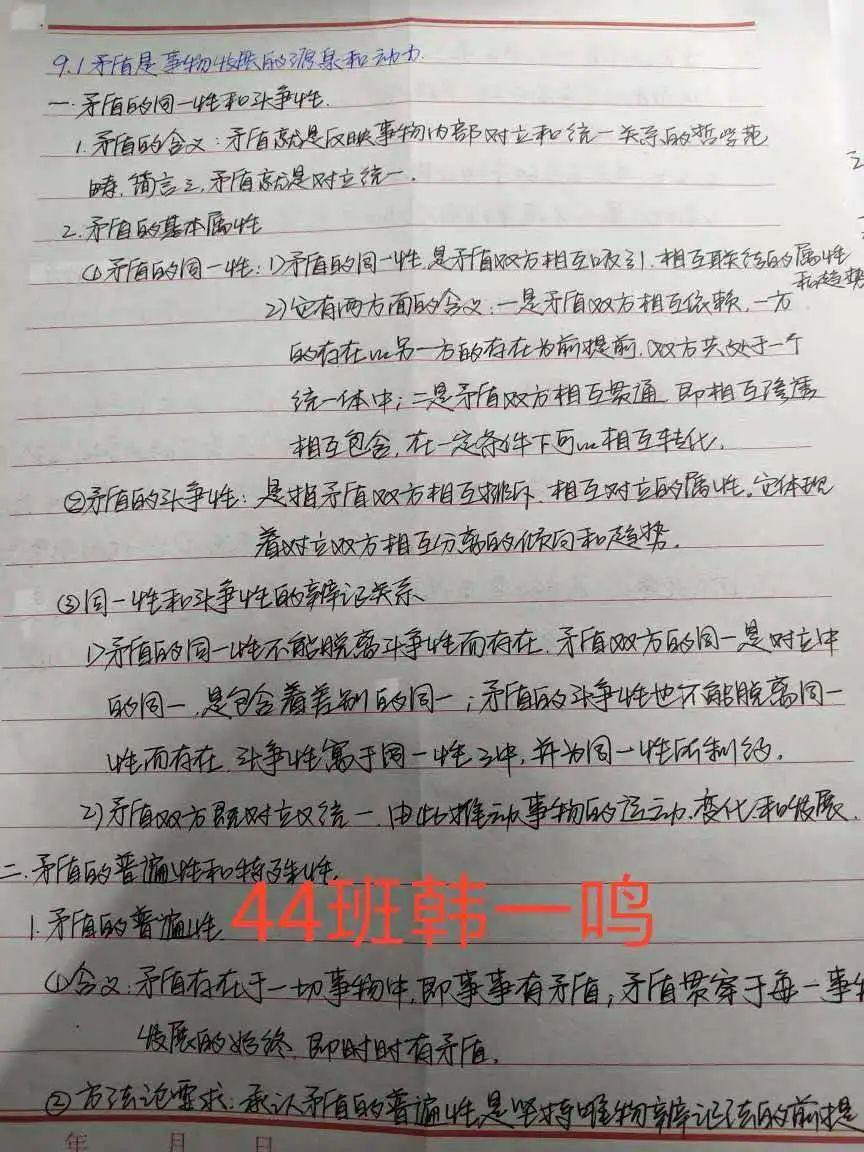 9.1矛盾是事物发展的源泉和动力.
一.矛盾的同一性和斗争性.
1.矛盾的含义:矛盾就是反映事物内部对立和统一关系的哲学范
畴,简言之,矛盾就是对立统一.
2.矛盾的基本属性
①矛盾的同一性:1)矛盾的同一性,是矛盾双方相互吸引.相互联结的属性
和趋势
2)它有两方面的含义:一是矛盾双方相互依赖,一方
的存在以另一方的存在为前提前,双方共处于一个
统一体中;二是矛盾双方相互贯通,即相互渗透
相互包含,在一定条件下可以相互转化.
②矛盾的斗争性:是指矛盾双方相互排斥、相互对立的属性。它体现
着对立双方相互分离的倾向和趋势。
③同一性和斗争性的辩证关系
1)矛盾的同一性不能脱离斗争性而存在,矛盾双方的同一是对立中
的同一,是包含着差别的同一;矛盾的斗争性也不能脱离同一
性而存在,斗争性寓于同一性之中,并为同一性所制约。
2)矛盾双方既对立又统一,由此推动事物的运动.变化和发展.
二.矛盾的普遍性和特殊性.
44班韩一鸣
1.矛盾的普遍性
①含义:矛盾存在于一切事物中,即事事有矛盾;矛盾贯穿于每一事物
发展的始终,即时时有矛盾.
②方法论要求:承认矛盾的普遍性是坚持唯物辩证法的前提
年 月 日